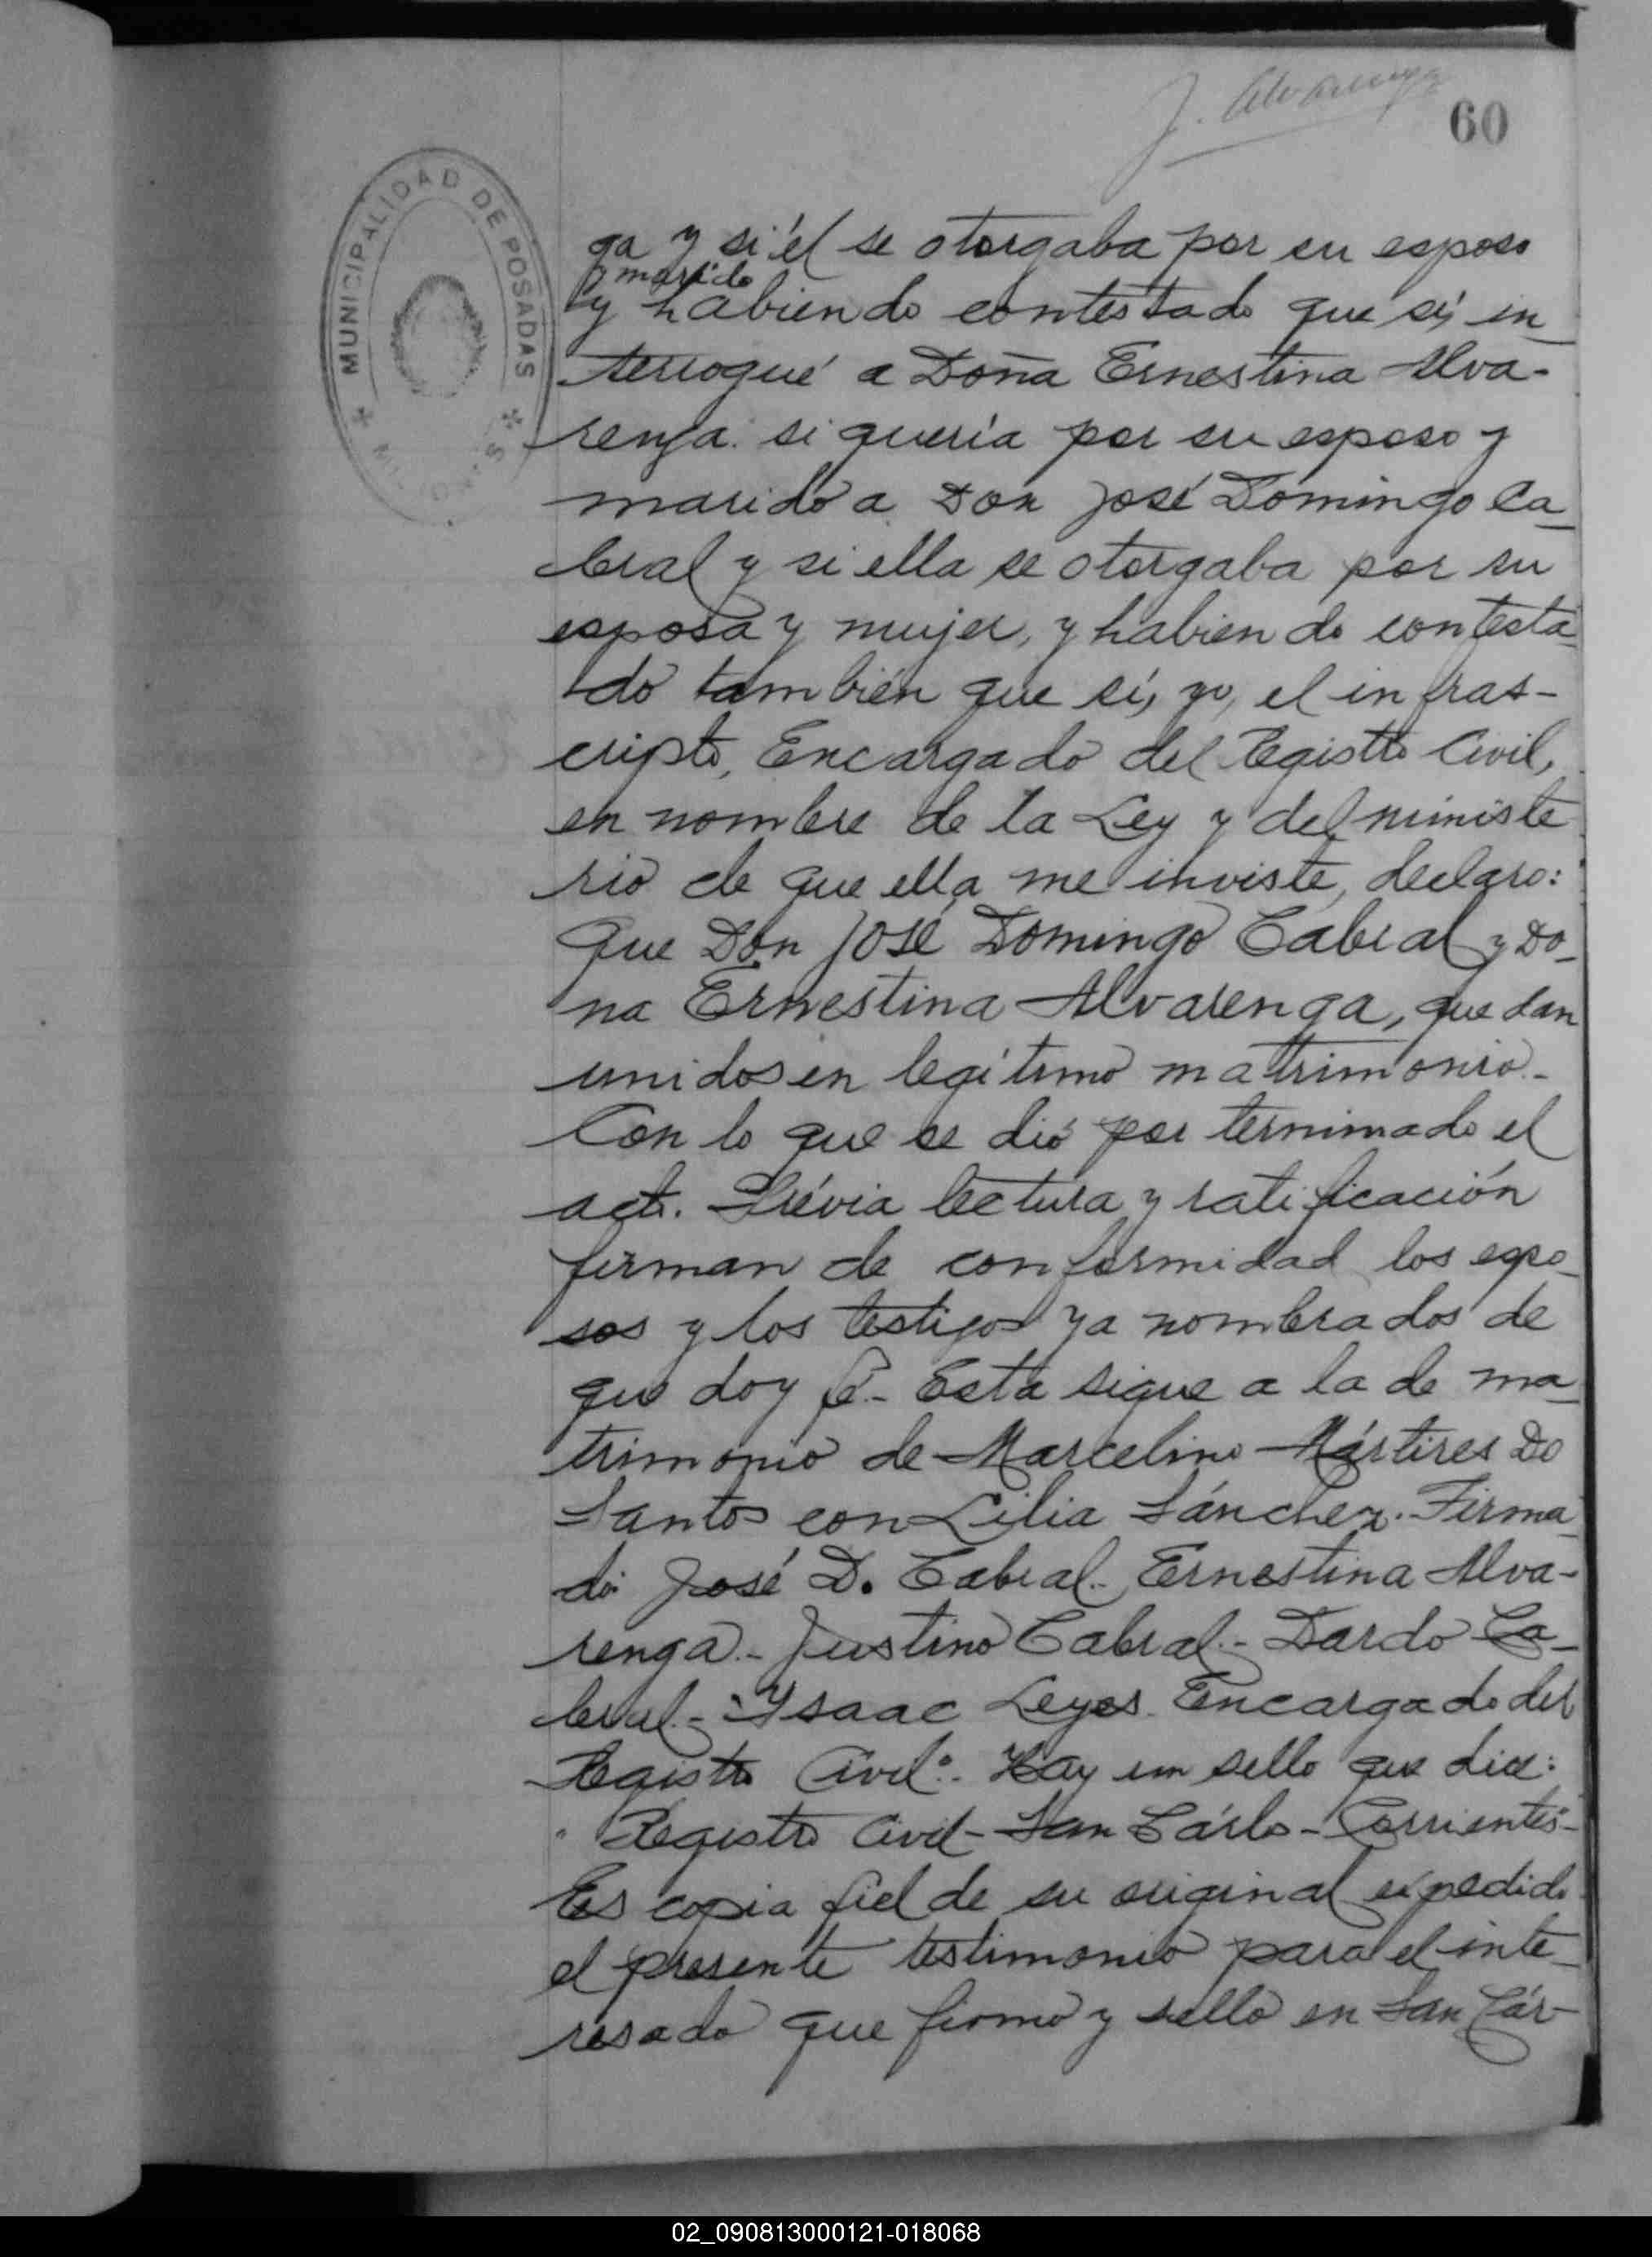 J. Alvarenga
60
MUNICIPALIDAD DE POSADAS
ga y si él se otorgaba por su esposo
y marido
y habiendo contestado que sí, in_
terrogué a Doña Ernestina Alva-
renga si quería por su esposo y
marido a Don José Domingo Ca_
bral y si ella se otorgaba por su
esposa y mujer, y habiendo contesta_
do también que sí, yo, el infras-
cripto, Encargado del Registro Civil,
en nombre de la Ley y del ministe
rio de que ella me inviste, declaro:
Que Don José Domingo Cabral y Do_
ña Ernestina Alvarenga, quedan
unidos en legítimo matrimonio.-
Con lo que se dió por terminado el
acto. Prévia lectura y ratificación
firman de conformidad los espo_
sos y los testigos ya nombrados de
que doy fé.- Esta sigue a la de ma_
trimonio de Marcelino Mártires Do
Santos con Lilia Sánchez. Firma_
do: José D. Cabral.- Ernestina Alva-
renga.- Justino Cabral.- Dardo Ca_
bral.- Ysaac Leyes. Encargado del
Registro Civil".- Hay un sello que dice:
"Registro Civil - San Cárlos - Corrientes"-
Es copia fiel de su original expedido
el presente testimonio para el inte_
resado que firmo y sello en San Cár-
02_090813000121-018068